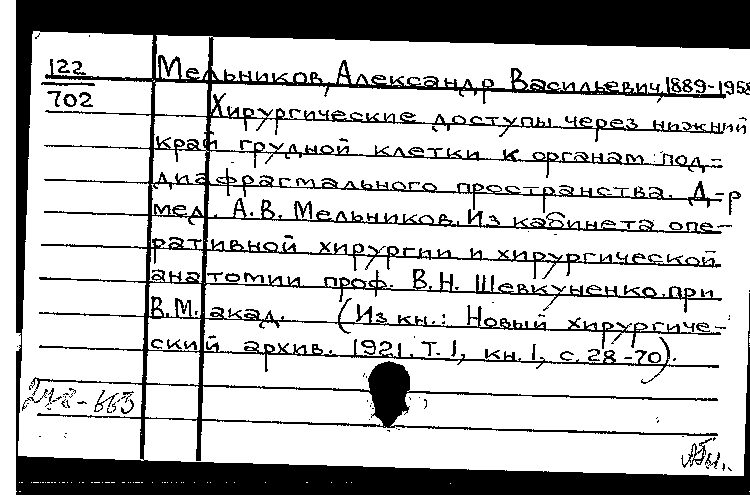 122 Мельников, Александр Васильевич, 1889-1958
702 Хирургические доступы через нижний
край грудной клетки к органам под-
диафрагмального пространства. Д-р
мед. А.В. Мельников. Из кабинета опе-
ративной хирургии и хирургической
анатомии проф. В.Н. Шевкуненко при
В.М. акад. (Из кн.: Новый хирургиче-
ский архив. 1921. Т. 1, кн. 1, с. 28-70).